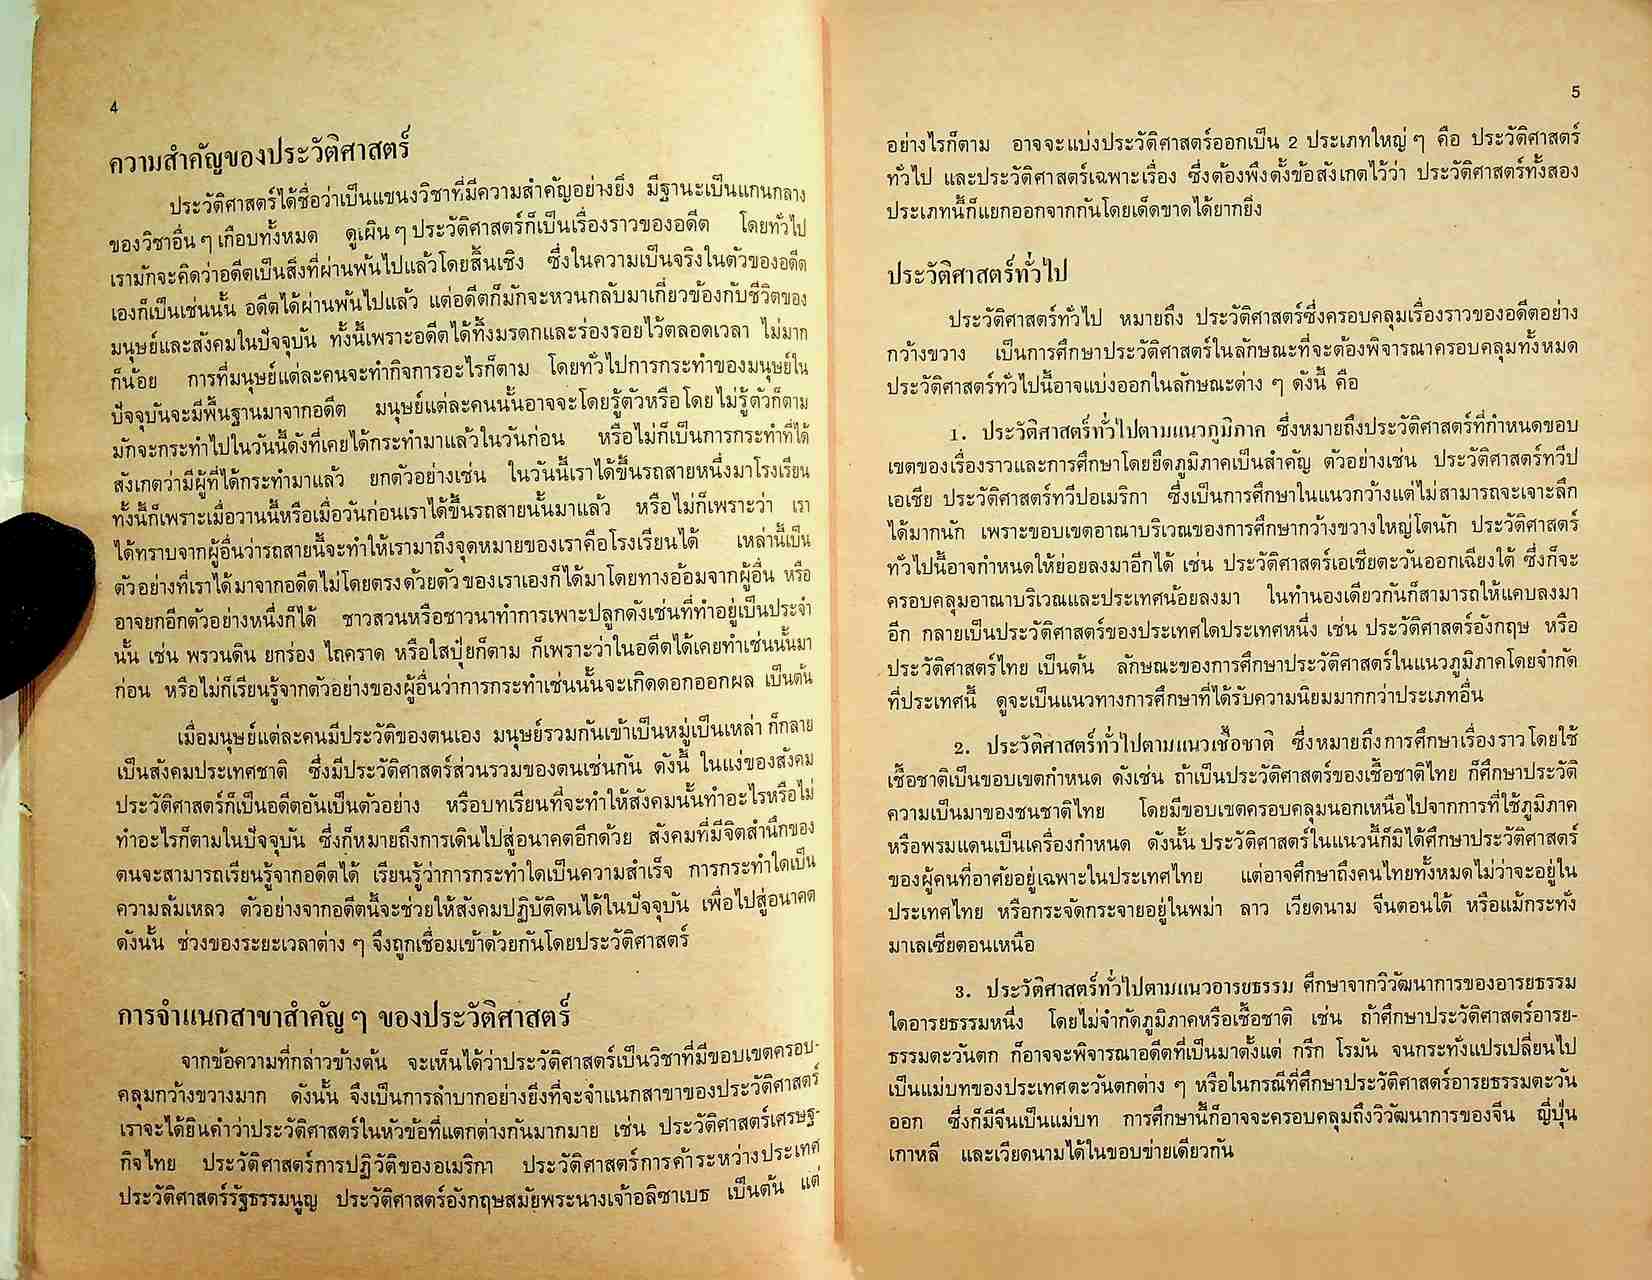 4
ความสำคัญของประวัติศาสตร์
ประวัติศาสตร์ได้ชื่อว่าเป็นแขนงวิชาที่มีความสำคัญอย่างยิ่ง มีฐานะเป็นแกนกลาง
ของวิชาอื่น ๆ เกือบทั้งหมด ดูเผิน ๆ ประวัติศาสตร์ก็เป็นเรื่องราวของอดีต โดยทั่วไป
เรามักจะคิดว่าอดีตเป็นสิ่งที่ผ่านพ้นไปแล้วโดยสิ้นเชิง ซึ่งในความเป็นจริงในตัวของอดีต
เองก็เป็นเช่นนั้น อดีตได้ผ่านพ้นไปแล้ว แต่อดีตก็มักจะหวนกลับมาเกี่ยวข้องกับชีวิตของ
มนุษย์และสังคมในปัจจุบัน ทั้งนี้เพราะอดีตได้ทิ้งมรดกและร่องรอยไว้ตลอดเวลา ไม่มาก
ก็น้อย การที่มนุษย์แต่ละคนจะทำกิจการอะไรก็ตาม โดยทั่วไปการกระทำของมนุษย์ใน
ปัจจุบันจะมีพื้นฐานมาจากอดีต มนุษย์แต่ละคนนั้นอาจจะโดยรู้ตัวหรือโดยไม่รู้ตัวก็ตาม
มักจะกระทำไปในวันนี้ดังที่เคยได้กระทำมาแล้วในวันก่อน หรือไม่ก็เป็นการกระทำที่ได้
สังเกตว่ามีผู้ที่ได้กระทำมาแล้ว ยกตัวอย่างเช่น ในวันนี้เราได้ขึ้นรถสายหนึ่งมาโรงเรียน
ทั้งนี้ก็เพราะเมื่อวานนี้หรือเมื่อวันก่อนเราได้ขึ้นรถสายนั้นมาแล้ว หรือไม่ก็เพราะว่า เรา
ได้ทราบจากผู้อื่นว่ารถสายนี้จะทำให้เรามาถึงจุดหมายของเราคือโรงเรียนได้ เหล่านี้เป็น
ตัวอย่างที่เราได้มาจากอดีตไม่โดยตรงด้วยตัวของเราเองก็ได้มาโดยทางอ้อมจากผู้อื่น หรือ
อาจยกอีกตัวอย่างหนึ่งก็ได้ ชาวสวนหรือชาวนาทำการเพาะปลูกดังเช่นที่ทำอยู่เป็นประจำ
นั้น เช่น พรวนดิน ยกร่อง ไถคราด หรือใส่ปุ๋ยก็ตาม ก็เพราะว่าในอดีตได้เคยทำเช่นนั้นมา
ก่อน หรือไม่ก็เรียนรู้จากตัวอย่างของผู้อื่นว่าการกระทำเช่นนั้นจะเกิดดอกออกผล เป็นต้น
เมื่อมนุษย์แต่ละคนมีประวัติของตนเอง มนุษย์รวมกันเข้าเป็นหมู่เป็นเหล่า ก็กลาย
เป็นสังคมประเทศชาติ ซึ่งมีประวัติศาสตร์ส่วนรวมของตนเช่นกัน ดังนี้ ในแง่ของสังคม
ประวัติศาสตร์ก็เป็นอดีตอันเป็นตัวอย่าง หรือบทเรียนที่จะทำให้สังคมนั้นทำอะไรหรือไม่
ทำอะไรก็ตามในปัจจุบัน ซึ่งก็หมายถึงการเดินไปสู่อนาคตอีกด้วย สังคมที่มีจิตสำนึกของ
ตนจะสามารถเรียนรู้จากอดีตได้ เรียนรู้ว่าการกระทำใดเป็นความสำเร็จ การกระทำใดเป็น
ความล้มเหลว ตัวอย่างจากอดีตนี้จะช่วยให้สังคมปฏิบัติตนได้ในปัจจุบัน เพื่อไปสู่อนาคต
ดังนั้น ช่วงของระยะเวลาต่าง ๆ จึงถูกเชื่อมเข้าด้วยกันโดยประวัติศาสตร์
การจำแนกสาขาสำคัญ ๆ ของประวัติศาสตร์
จากข้อความที่กล่าวข้างต้น จะเห็นได้ว่าประวัติศาสตร์เป็นวิชาที่มีขอบเขตครอบ-
คลุมกว้างขวางมาก ดังนั้น จึงเป็นการลำบากอย่างยิ่งที่จะจำแนกสาขาของประวัติศาสตร์
เราจะได้ยินคำว่าประวัติศาสตร์ในหัวข้อที่แตกต่างกันมากมาย เช่น ประวัติศาสตร์เศรษฐ-
กิจไทย ประวัติศาสตร์การปฏิวัติของอเมริกา ประวัติศาสตร์การค้าระหว่างประเทศ
ประวัติศาสตร์รัฐธรรมนูญ ประวัติศาสตร์อังกฤษสมัยพระนางเจ้าอลิซาเบธ เป็นต้น แต่
5
อย่างไรก็ตาม อาจจะแบ่งประวัติศาสตร์ออกเป็น 2 ประเภทใหญ่ ๆ คือ ประวัติศาสตร์
ทั่วไป และประวัติศาสตร์เฉพาะเรื่อง ซึ่งต้องพึงตั้งข้อสังเกตไว้ว่า ประวัติศาสตร์ทั้งสอง
ประเภทนี้ก็แยกออกจากกันโดยเด็ดขาดได้ยากยิ่ง
ประวัติศาสตร์ทั่วไป
ประวัติศาสตร์ทั่วไป หมายถึง ประวัติศาสตร์ซึ่งครอบคลุมเรื่องราวของอดีตอย่าง
กว้างขวาง เป็นการศึกษาประวัติศาสตร์ในลักษณะที่จะต้องพิจารณาครอบคลุมทั้งหมด
ประวัติศาสตร์ทั่วไปนี้อาจแบ่งออกในลักษณะต่าง ๆ ดังนี้ คือ
1. ประวัติศาสตร์ทั่วไปตามแนวภูมิภาค ซึ่งหมายถึงประวัติศาสตร์ที่กำหนดขอบ
เขตของเรื่องราวและการศึกษาโดยยึดภูมิภาคเป็นสำคัญ ตัวอย่างเช่น ประวัติศาสตร์ทวีป
เอเชีย ประวัติศาสตร์ทวีปอเมริกา ซึ่งเป็นการศึกษาในแนวกว้างแต่ไม่สามารถจะเจาะลึก
ได้มากนัก เพราะขอบเขตอาณาบริเวณของการศึกษากว้างขวางใหญ่โตนัก ประวัติศาสตร์
ทั่วไปนี้อาจกำหนดให้ย่อยลงมาอีกได้ เช่น ประวัติศาสตร์เอเชียตะวันออกเฉียงใต้ ซึ่งก็จะ
ครอบคลุมอาณาบริเวณและประเทศน้อยลงมา ในทำนองเดียวกันก็สามารถให้แคบลงมา
อีก กลายเป็นประวัติศาสตร์ของประเทศใดประเทศหนึ่ง เช่น ประวัติศาสตร์อังกฤษ หรือ
ประวัติศาสตร์ไทย เป็นต้น ลักษณะของการศึกษาประวัติศาสตร์ในแนวภูมิภาคโดยจำกัด
ที่ประเทศนี้ ดูจะเป็นแนวทางการศึกษาที่ได้รับความนิยมมากกว่าประเภทอื่น
2. ประวัติศาสตร์ทั่วไปตามแนวเชื้อชาติ ซึ่งหมายถึงการศึกษาเรื่องราวโดยใช้
เชื้อชาติเป็นขอบเขตกำหนด ดังเช่น ถ้าเป็นประวัติศาสตร์ของเชื้อชาติไทย ก็ศึกษาประวัติ
ความเป็นมาของชนชาติไทย โดยมีขอบเขตครอบคลุมนอกเหนือไปจากการที่ใช้ภูมิภาค
หรือพรมแดนเป็นเครื่องกำหนด ดังนั้น ประวัติศาสตร์ในแนวนี้ก็มิได้ศึกษาประวัติศาสตร์
ของผู้คนที่อาศัยอยู่เฉพาะในประเทศไทย แต่อาจศึกษาถึงคนไทยทั้งหมดไม่ว่าจะอยู่ใน
ประเทศไทย หรือกระจัดกระจายอยู่ในพม่า ลาว เวียดนาม จีนตอนใต้ หรือแม้กระทั่ง
มาเลเซียตอนเหนือ
3. ประวัติศาสตร์ทั่วไปตามแนวอารยธรรม ศึกษาจากวิวัฒนาการของอารยธรรม
ใดอารยธรรมหนึ่ง โดยไม่จำกัดภูมิภาคหรือเชื้อชาติ เช่น ถ้าศึกษาประวัติศาสตร์อารย-
ธรรมตะวันตก ก็อาจจะพิจารณาอดีตที่เป็นมาตั้งแต่ กรีก โรมัน จนกระทั่งแปรเปลี่ยนไป
เป็นแม่บทของประเทศตะวันตกต่าง ๆ หรือในกรณีที่ศึกษาประวัติศาสตร์อารยธรรมตะวัน
ออก ซึ่งก็มีจีนเป็นแม่บท การศึกษานี้ก็อาจจะครอบคลุมถึงวิวัฒนาการของจีน ญี่ปุ่น
เกาหลี และเวียดนามได้ในขอบข่ายเดียวกัน